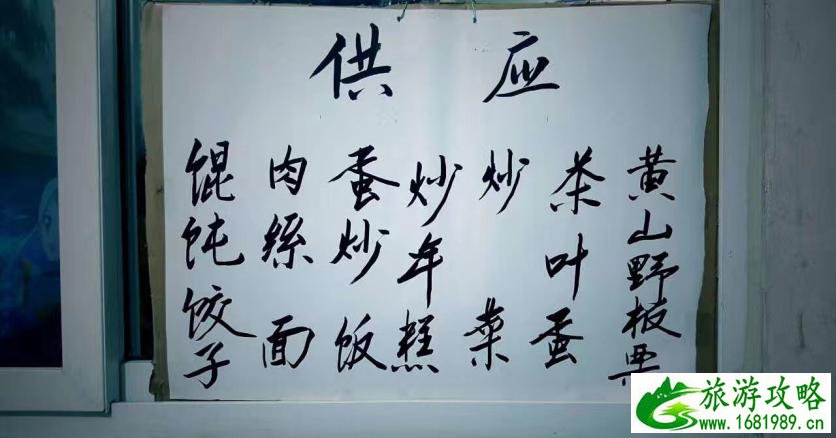 供应
馄饨饺子
肉絲面
蛋炒饭
炒年糕
炒菜
茶叶蛋
黄山野板栗
旅游攻略
www.1681989.cn